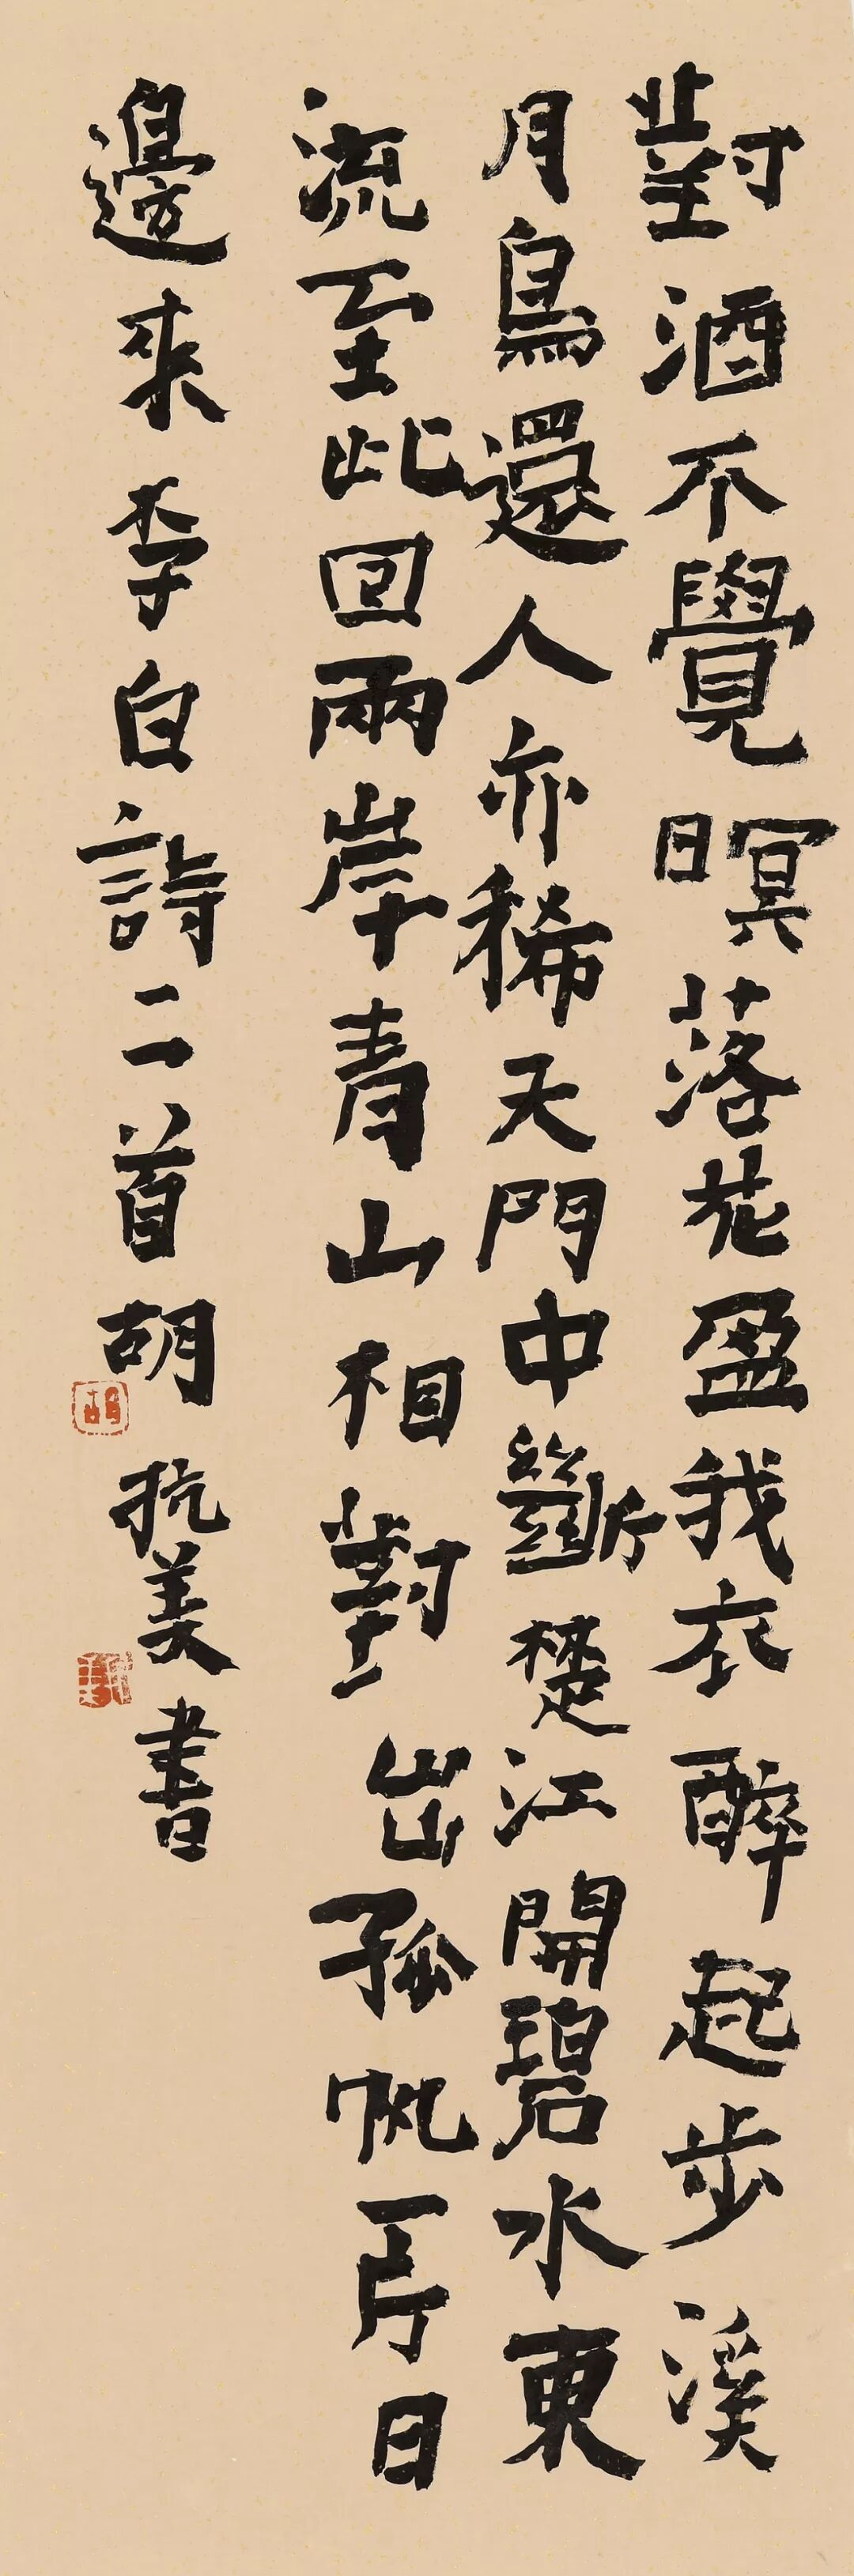 對酒不覺暝落花盈我衣醉起步溪
月鳥還人亦稀天門中斷楚江開碧水東
流至此回兩岸青山相對出孤帆一片日
邊來李白詩二首胡抗美書
胡